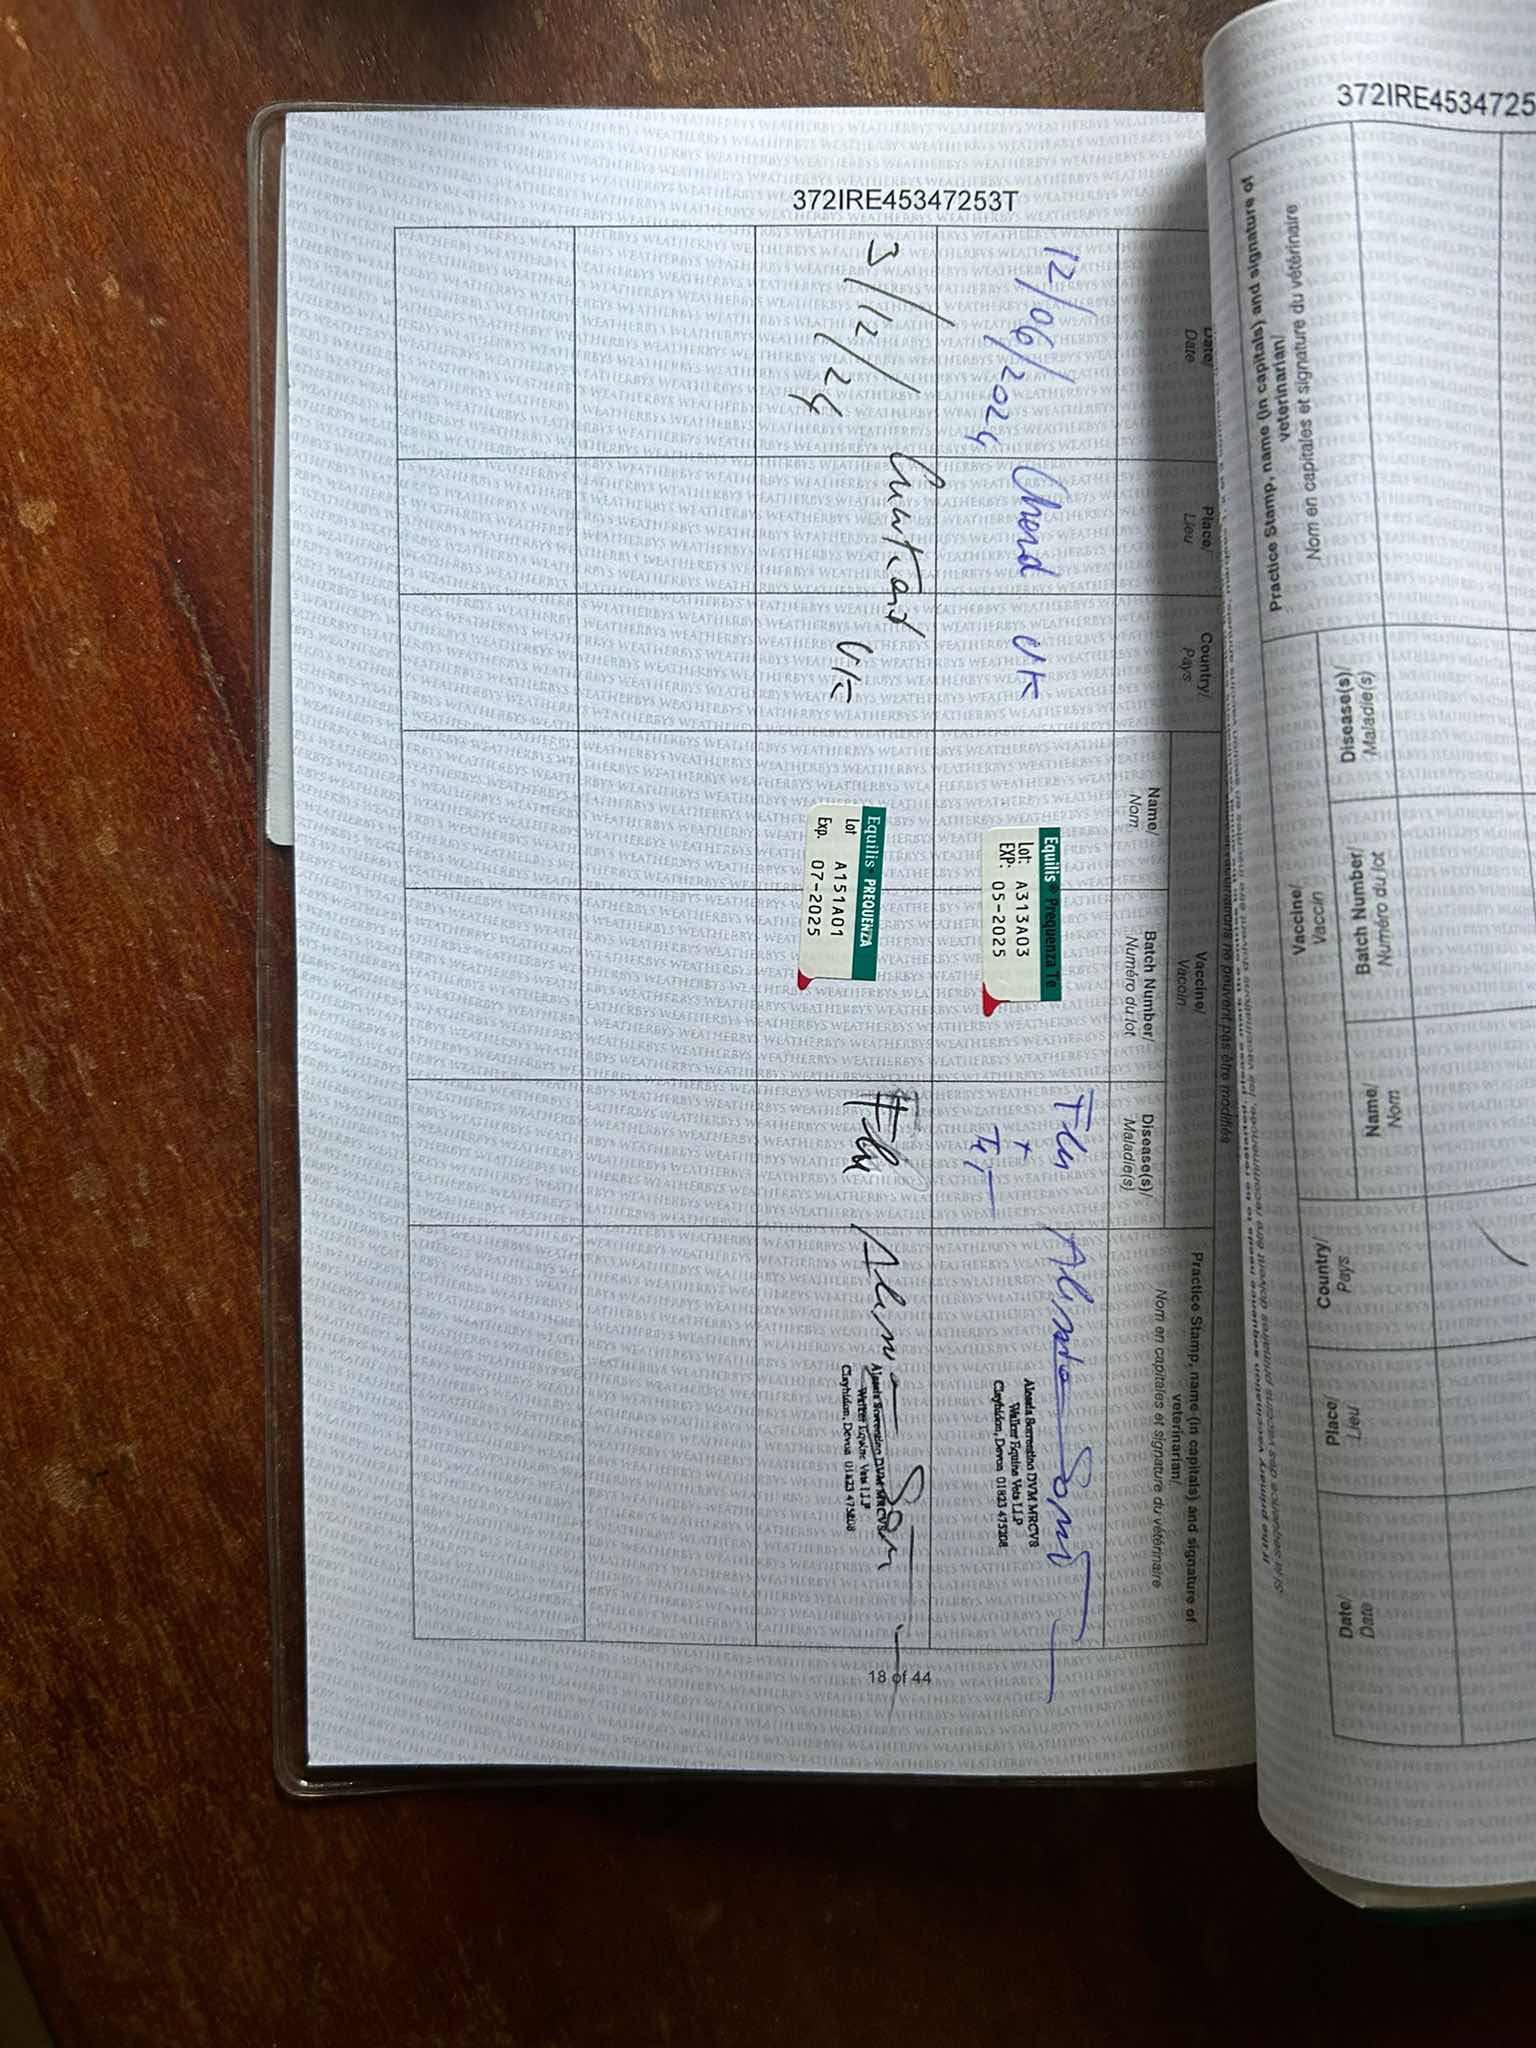 372IRE45347253T
Date/ Place/ Country/ Vaccine/ Practice Stamp, name (in capitals) and signature of
Date Lieu Pays Vaccin veterinarian/
Name/ Batch Number/ Disease(s)/ Nom en capitales et signature du vétérinaire
Nom Numéro du lot Maladie(s)
12/06/2024 Chard UK Flu
+
Equilis® Prequenza Te
Lot: A313A03
EXP: 05-2025
Alessia Sorrentino DVM MRCVS
Walker Equine Vets LLP
Clayhidon, Devon 01823 475208
3/12/24 UK Flu
Equilis® PREQUENZA
Lot A151A01
Exp. 07-2025
Sorrentino DVM MRCVS
Equine Vets LLP
Clayhidon, Devon 01823
18 of 44
372IRE4534725
Date/ Place/ Country/ Vaccine/ Practice Stamp, name (in capitals) and signature of
Date Lieu Pays Vaccin veterinarian/
Name/ Batch Number/ Disease(s)/ Nom en capitales et signature du vétérinaire
Nom Numéro du lot Maladie(s)
WEATHERBYS